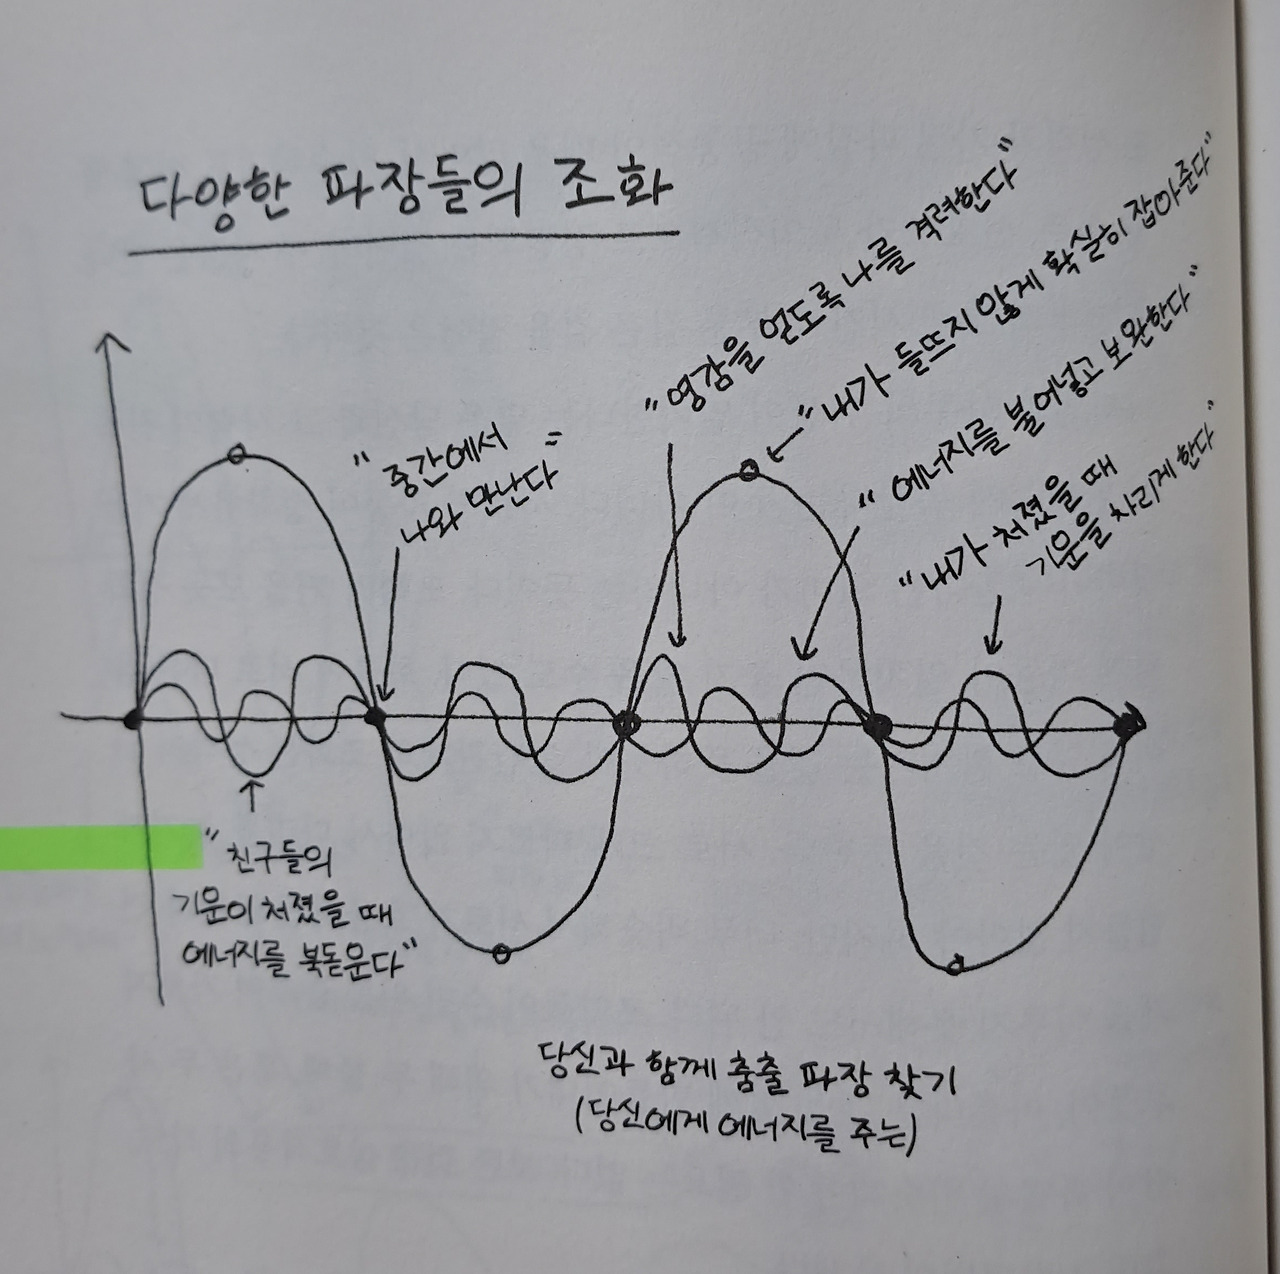 다양한 파장들의 조화
"영감을 얻도록 나를 격려한다"
"내가 들뜨지 않게 확실히 잡아준다"
"에너지를 불어넣고 보완한다"
"내가 처졌을 때
기운을 차리게 한다"
"중간에서
나와 만난다"
"친구들의
기운이 처졌을 때
에너지를 북돋운다"
당신과 함께 춤출 파장 찾기
(당신에게 에너지를 주는)